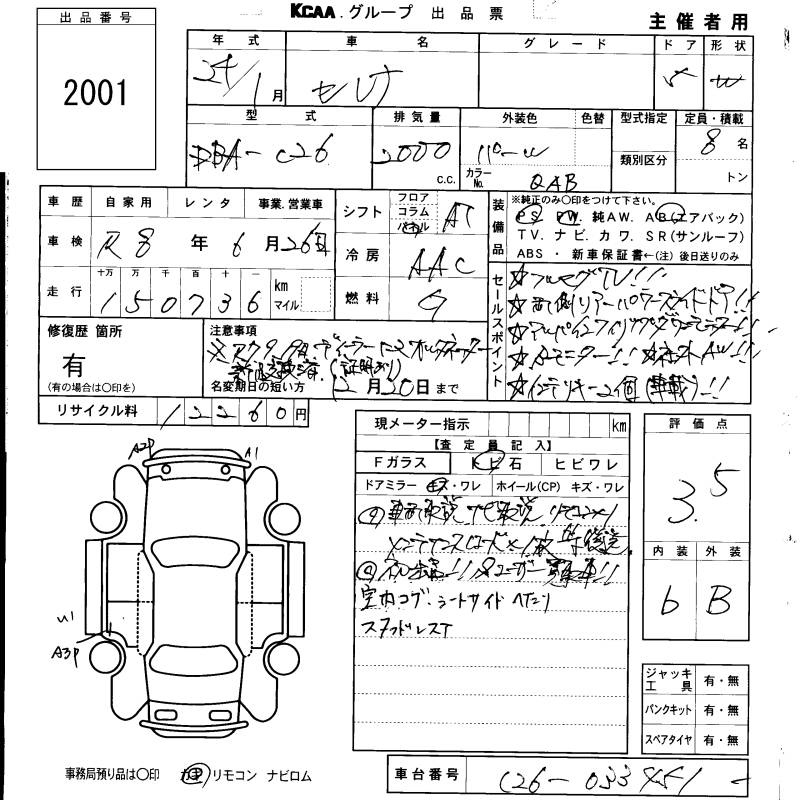 KCAA グループ 出品票
主催者用
出品番号
2001
年式 車名 グレード ドア 形状
24/1月 セレナ 5 W
型式 排気量 外装色 色替 型式指定 定員・積載
DBA-C26 2000 c.c. パール 8名
カラーNo. QAB 類別区分 トン
車歴 自家用 レンタ 事業.営業車
車検 R8年6月26日
走行 十万 万 千 百 十 一
150736 km マイル
シフト フロア コラム パネル AT
冷房 AAC
燃料 G
装備品 ※純正のみ〇印をつけて下さい。
PS. PW. 純AW. AB(エアバック)
TV. ナビ. カワ. SR(サンルーフ)
ABS ・ 新車保証書←(注) 後日送りのみ
セールスポイント
☆フルセグTV!!
☆両側リアパワースライドドア!!
☆アルパインフリップダウンモニター!!
☆インテリキー2個(車載)!!
修復歴 箇所
有
(有の場合は〇印を)
注意事項
名変期日の短い方 12月20日まで
リサイクル料 12260円
現メーター指示 km
【査定員記入】
Fガラス トビ石 ヒビワレ
ドアミラー キズ・ワレ ホイール(CP) キズ・ワレ
メンテナンスノート
室内コゲ・シートサイドヘタリ
スタッドレスT
評価点
3.5
内装 外装
6 B
ジャッキ 工具 有・無
パンクキット 有・無
スペアタイヤ 有・無
A2P A1
U1
A3P
事務局預り品は〇印 リモコン ナビロム
車台番号 C26-033451